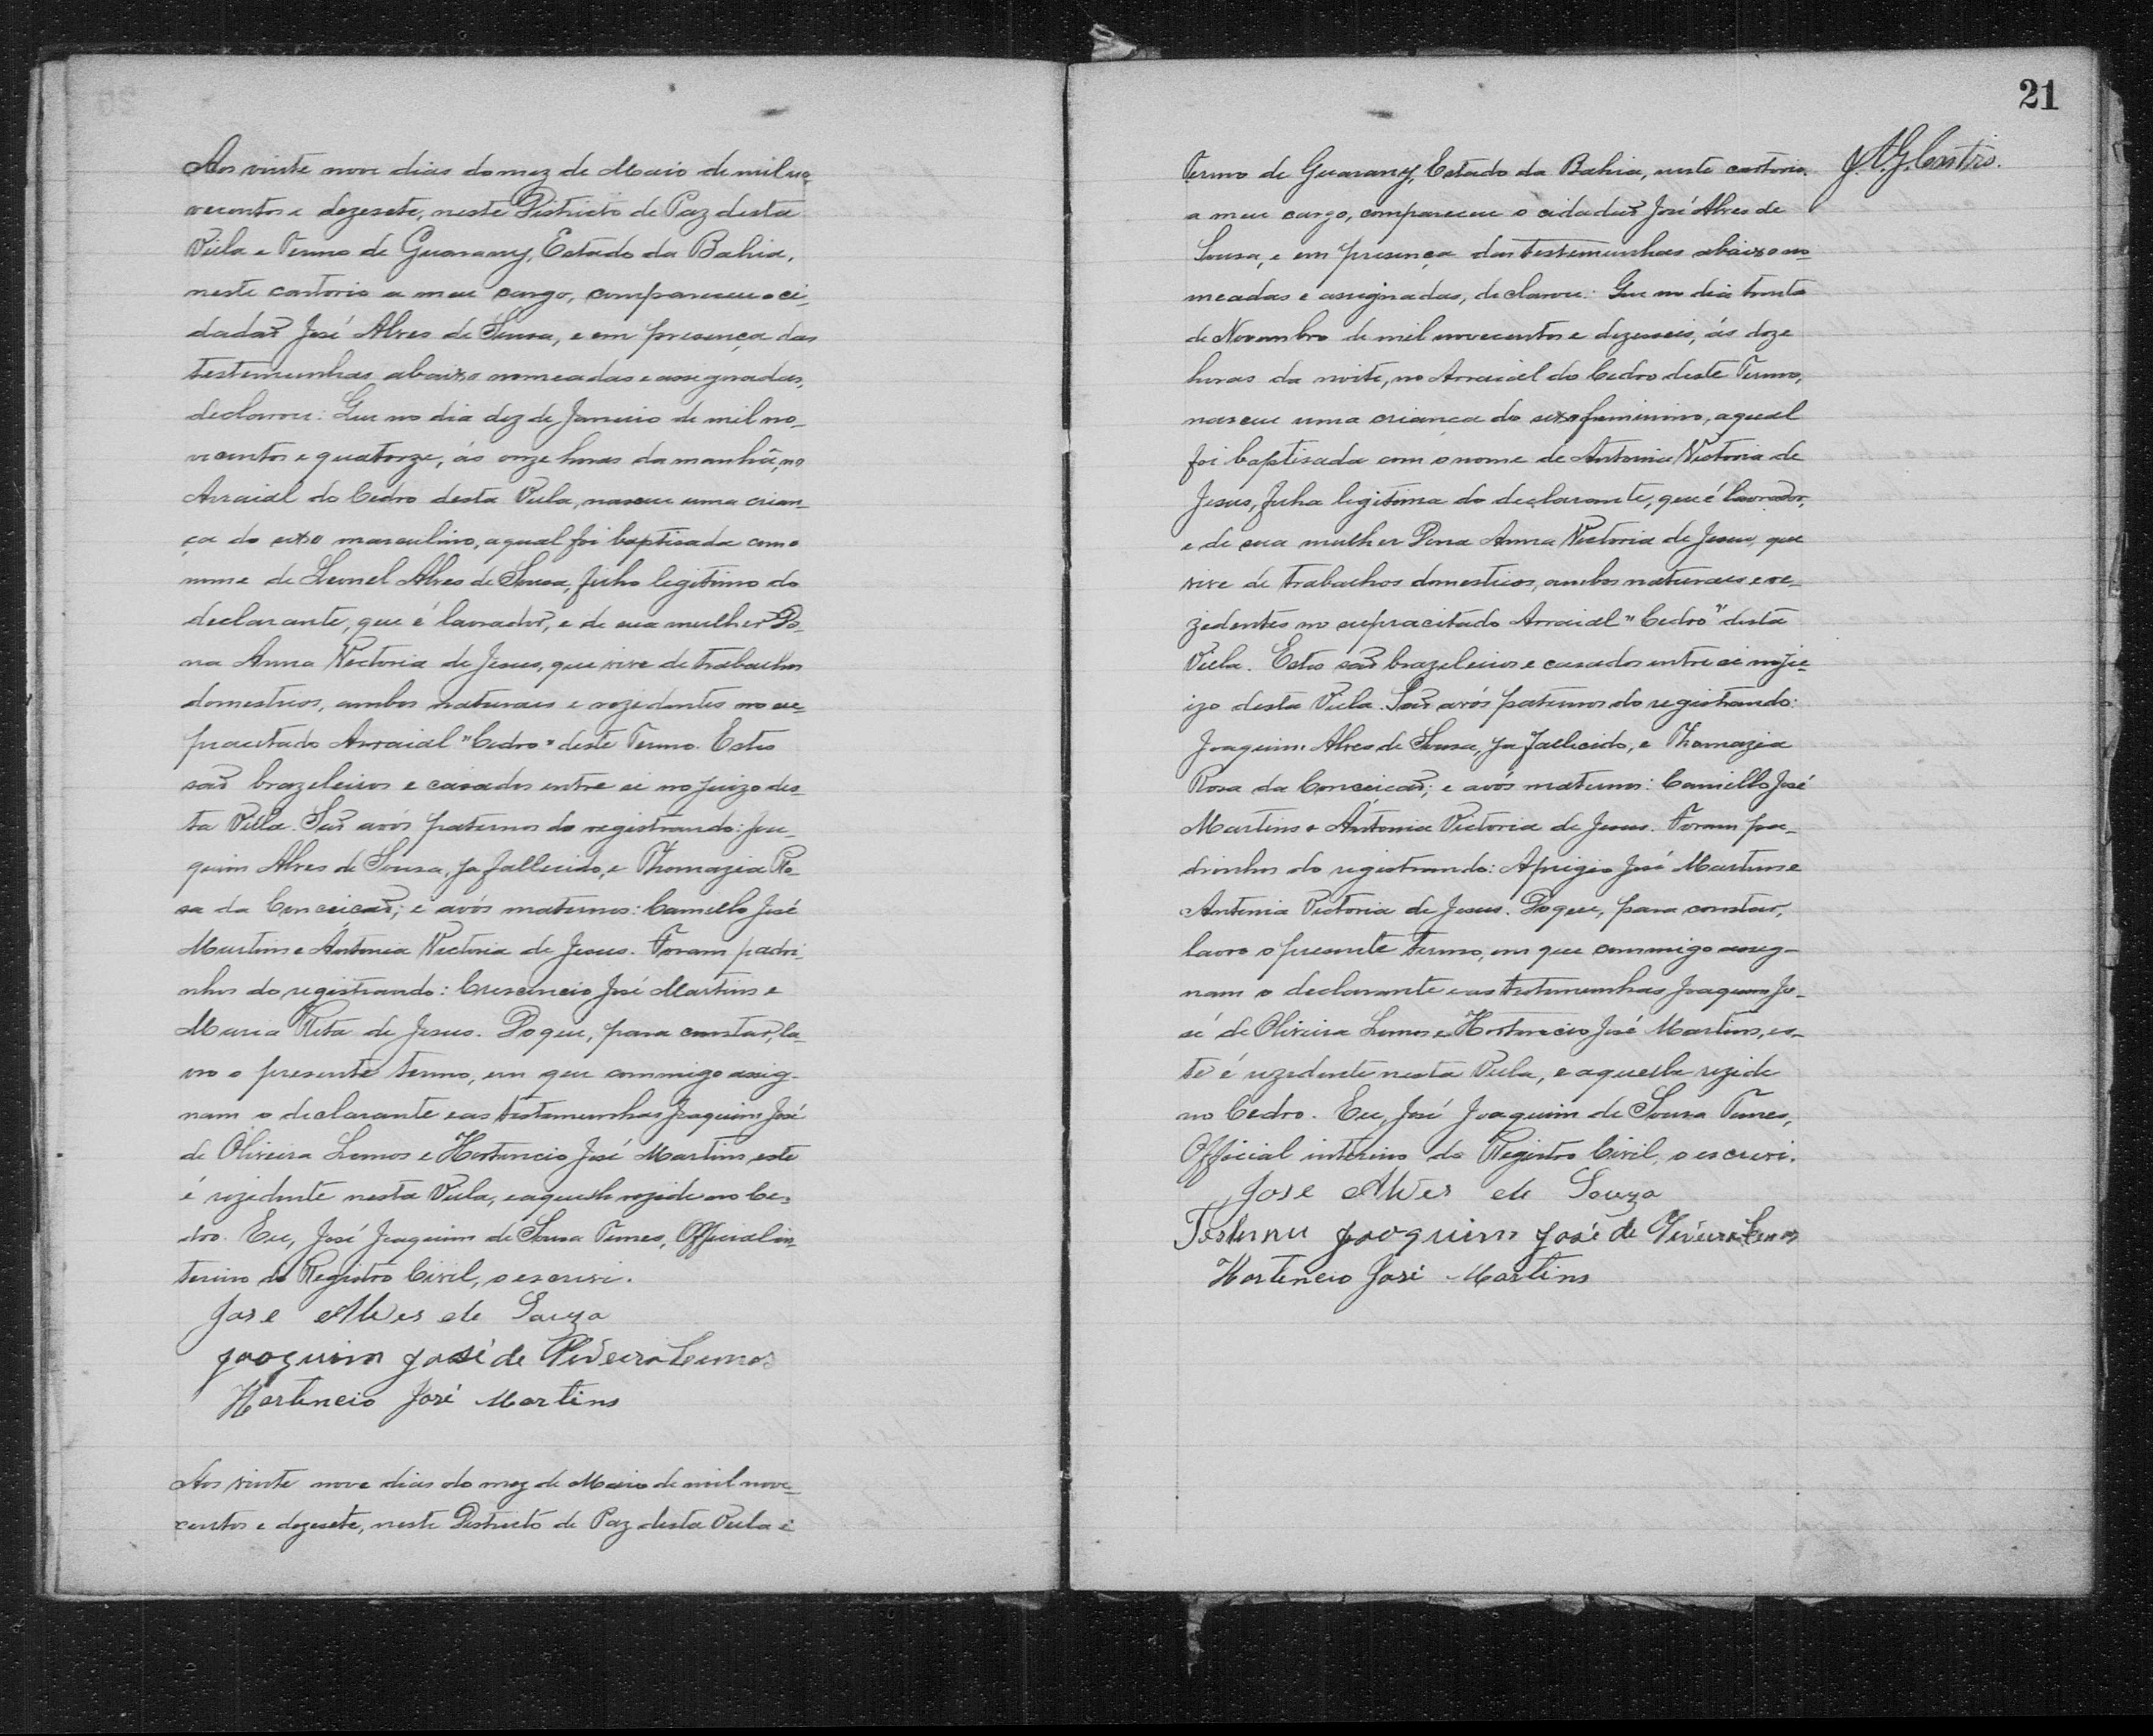 Aos vinte nove dias do mez de Maio de mil no-
vecentos e dezesete, neste Districto de Paz desta
Villa e Termo de Guarany, Estado da Bahia,
neste cartorio a meu cargo, compareceu o ci-
dadaõ José Alves de Sousa, e em presença das
testemunhas abaixo nomeadas e assegnadas,
declarou: Que no dia dez de Janeiro de mil no-
vecentos e quatorze, ás onze horas da manhã, no
Arraial do Cedro desta Villa, nasceu uma crian-
ça do sexo masculino, a qual foi baptisada com o
nome de Leonel Alves de Sousa, filho legitimo do
declarante, que é lavrador, e de sua mulher Do-
na Anna Victoria de Jesus, que vive de trabalhos
domesticos, ambos naturaes e rezedentes no su-
pracitado Arraial "Cedro" deste Termo. Estes
saõ brazeleiros e casados entre si no juizo des-
ta Villa. Saõ avós paternos do registrando: Joa-
quim Alves de Sousa, ja fallecido, e Thomazia Ro-
sa da Conceicaõ; e avós maternos: Camillo José
Martins e Antonia Victoria de Jesus. Foram padri-
nhos do registrando: Crescencio José Martins e
Maria Rita de Jesus. Do que, para constar, la-
vro o presente termo, em que commigo assig-
nam o declarante e as testemunhas Joaquim José
de Oliveira Lemos e Hortencio José Martins, este
é rezedente nesta Villa, e aquelle rezide no Ce-
dro. Eu, José Joaquim de Sousa Tunes, Official in-
terino do Registro Civil, o escrevi.
Jose Alves de Souza
Joaquim José de Oliveira Lemos
Hortencio José Martins
Aos vinte nove dias do mez de Maio de mil nove-
centos e dezesete, neste Districto de Paz desta Villa e
21
J. A. G. Castro.
Termo de Guarany, Estado da Bahia, neste cartorio
a meu cargo, compareceu o cidadaõ José Alves de
Sousa, e em presença das testemunhas abaixo no-
meadas e assignadas, declarou: Que no dia trinta
de Novembro de mil novecentos e dezesseis, ás doze
horas da noite, no Arraial do Cedro deste Termo,
nasceu uma criança do sexo feminino, a qual
foi baptisada com o nome de Antonia Victoria de
Jesus, filha legitima do declarante, que é lavrador,
e de sua mulher Dona Anna Victoria de Jesus, que
vive de trabalhos domesticos, ambos naturaes e re-
zedentes no supracitado Arraial "Cedro" desta
Villa. Estes saõ brazeleiros e casados entre si no ju-
izo desta Villa. Saõ avós paternos do registrando:
Joaquim Alves de Sousa, ja fallecido, e Thomazia
Rosa da Conceicaõ; e avós maternos: Camillo José
Martins e Antonia Victoria de Jesus. Foram pa-
drinhos do registrando: Aprigio José Martins e
Antonia Victoria de Jesus. Do que, para constar,
lavro o presente termo, em que commigo asseg-
nam o declarante e as testemunhas Joaquim Jo-
sé de Oliveira Lemos e Hortencio José Martins, es-
te é rezedente nesta Villa, e aquelle rezide
no Cedro. Eu, José Joaquim de Sousa Tunes,
Official interino do Registro Civil, o escrevi.
Jose Alves de Souza
Testemu Joaquim José de Oliveira Lemos
Hortencio José Martins